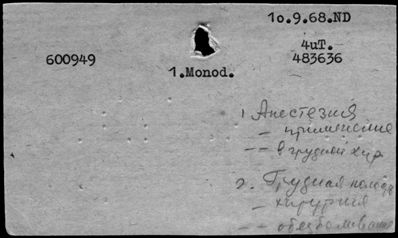 1o.9.68.ND
4uT.
600949
483636
1.Monod.
1 Анестезия
— применение
—— в грудной хир
2. Грудная полость
— хирургия
—— обезболивание